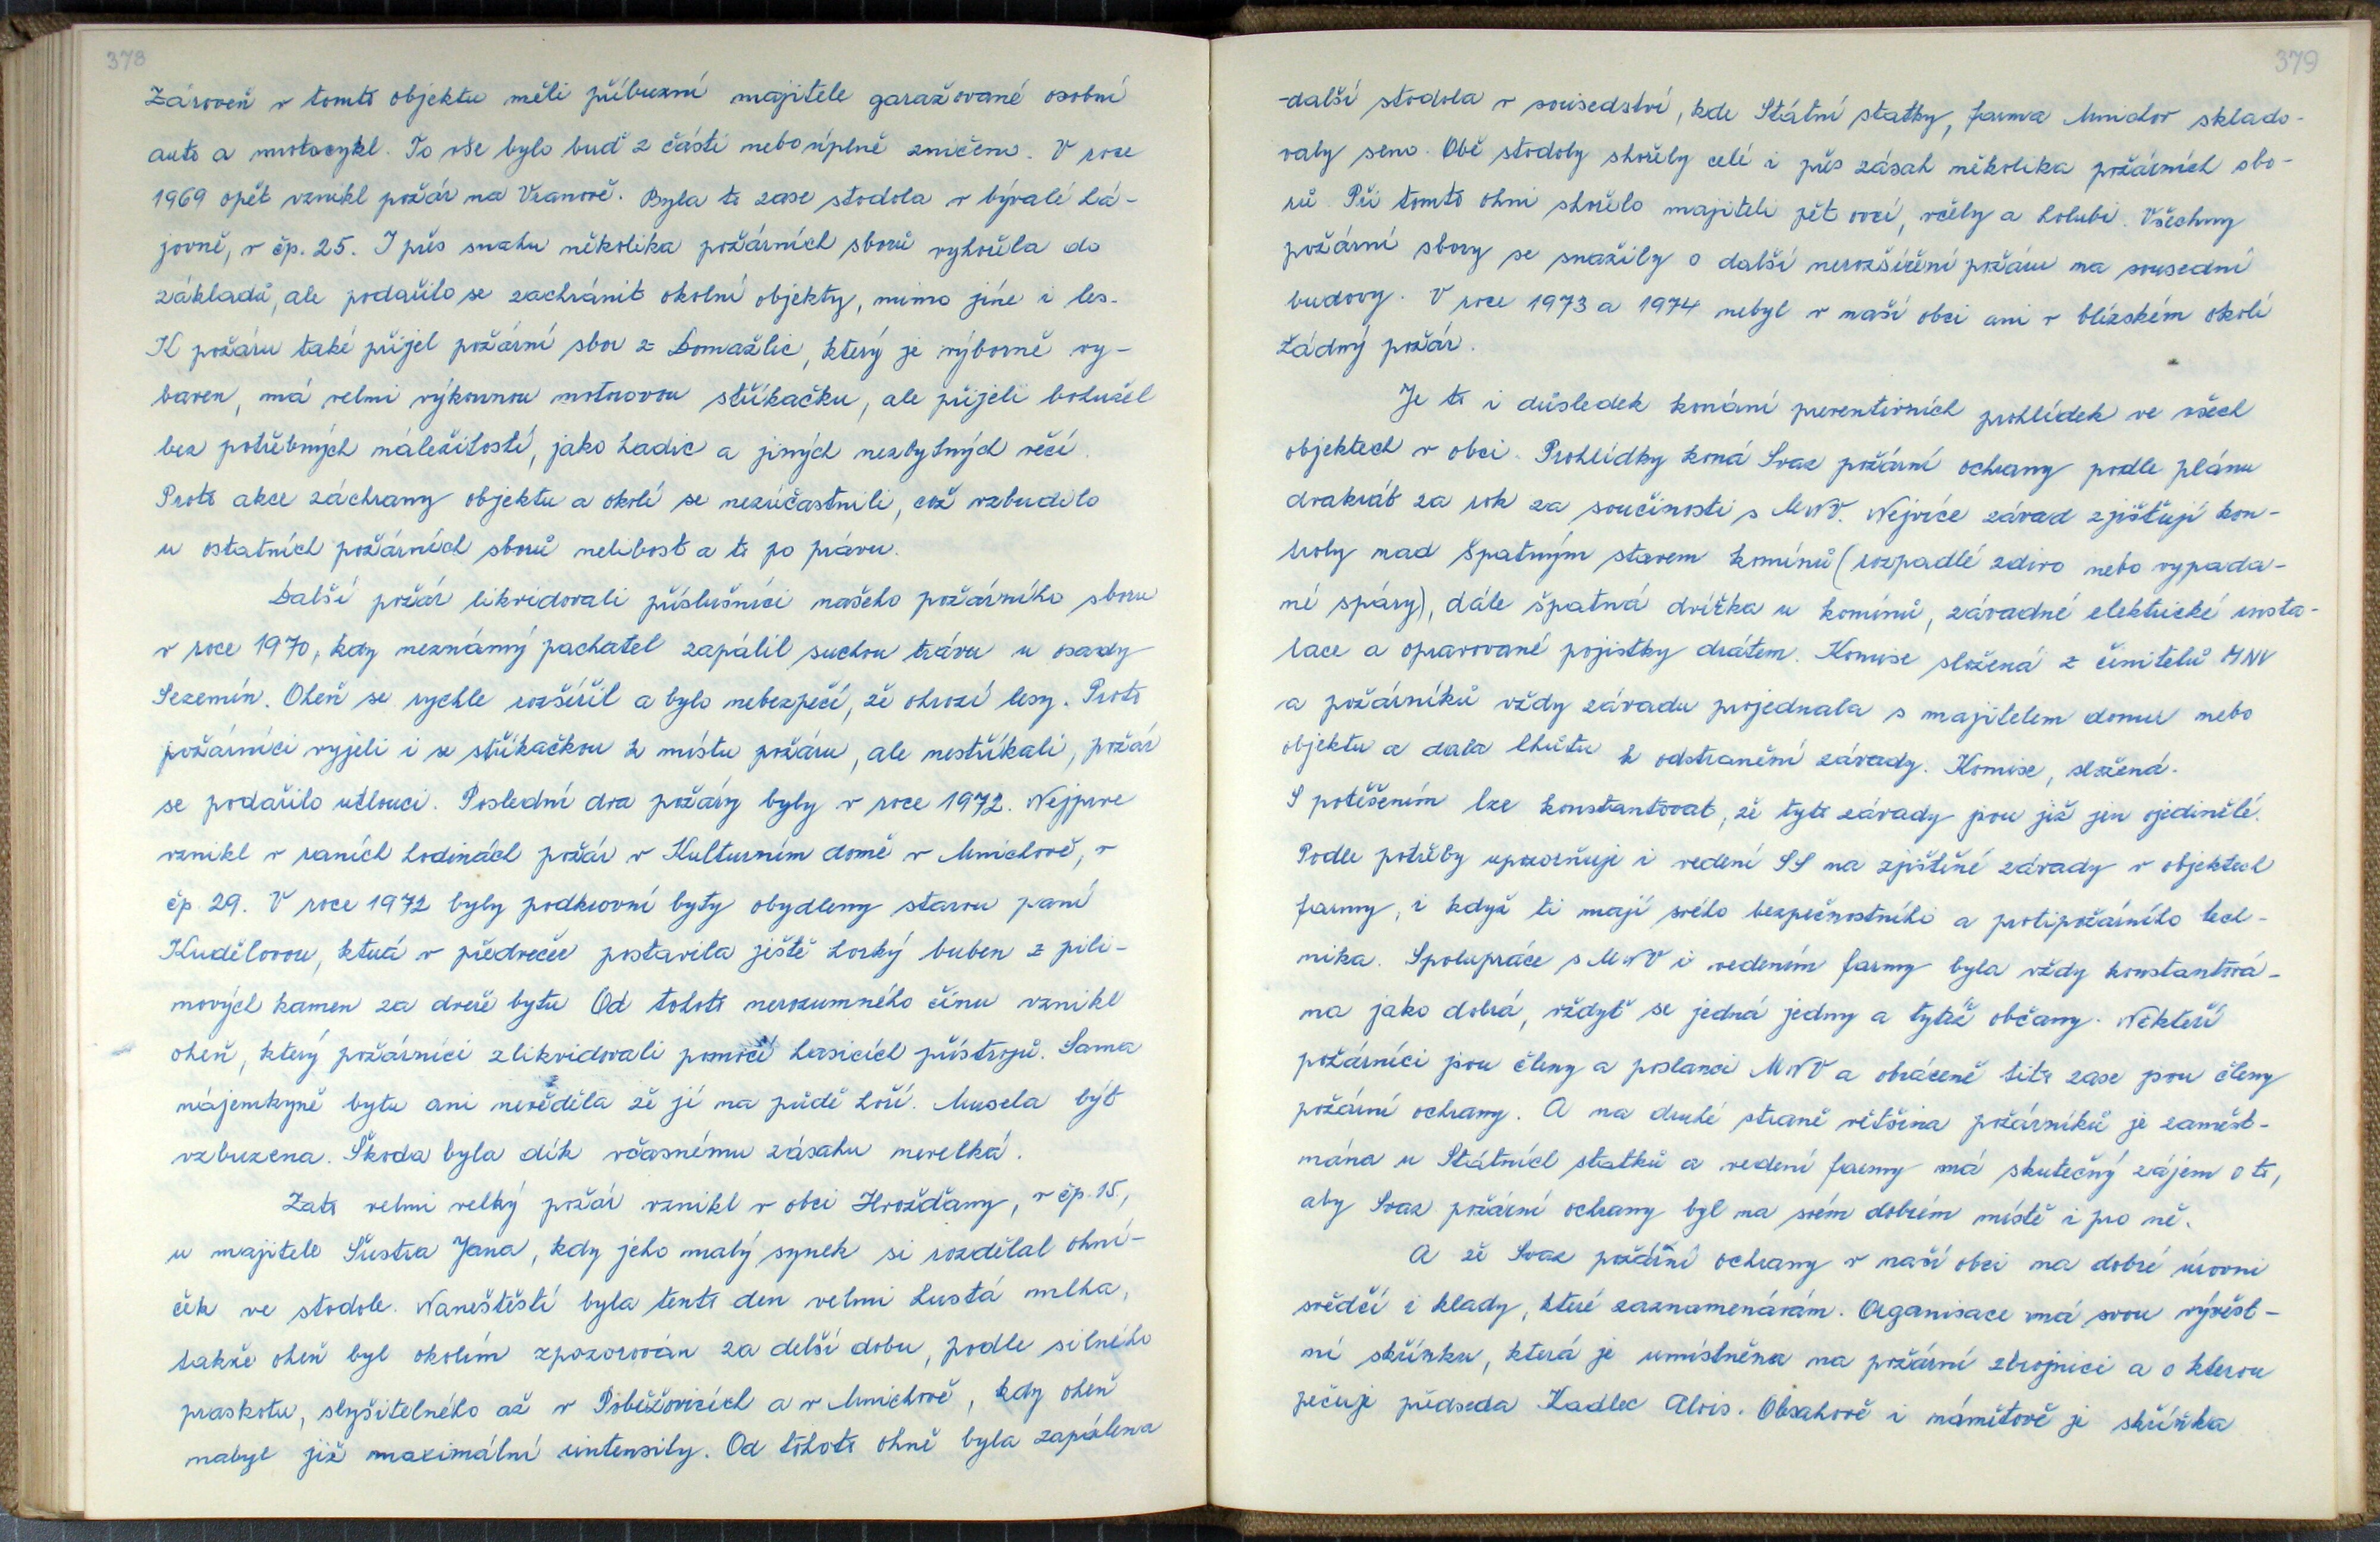 378
Zároveň v tomto objektu měli příbuzní majitele garažované osobní
auto a motocykl. To vše bylo buď z části nebo úplně zničeno. V roce
1969 opět vznikl požár na Vranově. Byla to zase stodola v bývalé há-
jovně, v čp. 25. I přes snahu několika požárních sborů vyhořela do
základů, ale podařilo se zachránit okolní objekty, mimo jíne i les.
K požáru také přijel požární sbor z Domažlic, který je výborně vy-
baven, má velmi výkonnou motorovou stříkačku, ale přijeli bohužel
bez potřebných náležitostí, jako hadic a jiných nezbytných věcí.
Proto akce záchrany objektu a okolí se nezúčastnili, což vzbudilo
u ostatních požárních sborů nelibost a to po právu.
Další požár likvidovali příslušníci našeho požárního sboru
v roce 1970, kdy neznámý pachatel zapálil suchou trávu u osady
Sezemín. Oheň se rychle rozšířil a bylo nebezpečí, že ohrozí lesy. Proto
požárníci vyjeli i se stříkačkou k místu požáru, ale nestříkali, požár
se podařilo utlouci. Poslední dva požáry byly v roce 1972. Nejprve
vznikl v raních hodinách požár v Kulturním domě v Mnichově, v
čp. 29. V roce 1972 byly podkrovní byty obydleny starou paní
Kudělovou, která v předvečer postavila ještě horký buben z pili-
nových kamen za dveře bytu Od tohoto nerozumného činu vznikl
oheň, který požárníci zlikvidovali pomocí hasicích přístrojů. Sama
nájemkyně bytu ani nevěděla že jí na půdě hoří. Musela být
vzbuzena. Škoda byla dík včasnému zásahu nevelká.
Zato velmi velký požár vznikl v obci Hvožďany, v čp. 15,
u majitele Šustra Jana, kdy jeho malý synek si rozdělal ohní-
ček ve stodole. Naneštěstí byla tento den velmi hustá mlha,
takže oheň byl okolím zpozorován za delší dobu, podle silného
praskotu, slyšitelného až v Poběžovicích a v Mnichově, kdy oheň
nabyl již maximální intensity. Od tohoto ohně byla zapálena
379
-další stodola v sousedství, kde Státní statky, farma Mnichov sklado-
valy seno. Obě stodoly shořely celé i přes zásah několika požárních sbo-
rů Při tomto ohni shořelo majiteli pět ovcí, včely a holubi. Všechny
požární sbory se snažily o další nerozšíření požáru na sousední
budovy. V roce 1973 a 1974 nebyl v naší obci ani v blízském okolí
žádný požár.
Je to i důsledek konání preventivních prohlídek ve všech
objektech v obci. Prohlídky koná Svaz požární ochrany podle plánu
dvakrát za rok za součinosti s MNV. Nejvíce závad zjišťují kon-
troly nad špatným stavem komínů (rozpadlé zdivo nebo vypada-
né spáry), dále špatná dvířka u komínů, závadné elektrické insta-
lace a opravované pojistky drátem. Komise složená z činitelů MNV
a požárníků vždy závadu projednala s majitelem domu nebo
objektu a dala lhůtu k odstranění závady. Komise, složená.
S potěšením lze konstantovat, že tyto závady jsou již jen ojedinělé.
Podle potřeby upozorňuje i vedení SS na zjištěné závady v objektech
farmy, i když ti mají svého bezpečnostního a protipožárního tech-
nika. Spolupráce s MNV i vedením farmy byla vždy konstantová-
na jako dobrá, vždyť se jedná jedny a tytéž občany. Někteří
požárníci jsou členy a poslanci MNV a obráceně tito zase jsou členy
požární ochrany. A na druhé straně většina požárníků je zaměst-
nána u Státních statků a vedení farmy má skutečný zájem o to,
aby Svaz požární ochrany byl na svém dobrém místě i pro ně.
A že Svaz požární ochrany v naší obci na dobré úrovni
svědčí i klady, které zaznamenávám. Organisace má svou vývěst-
ní skřínku, která je umístněna na požární zbrojnici a o kterou
pečuje předseda Kadlec Alois. Obsahově i námětově je skříňka